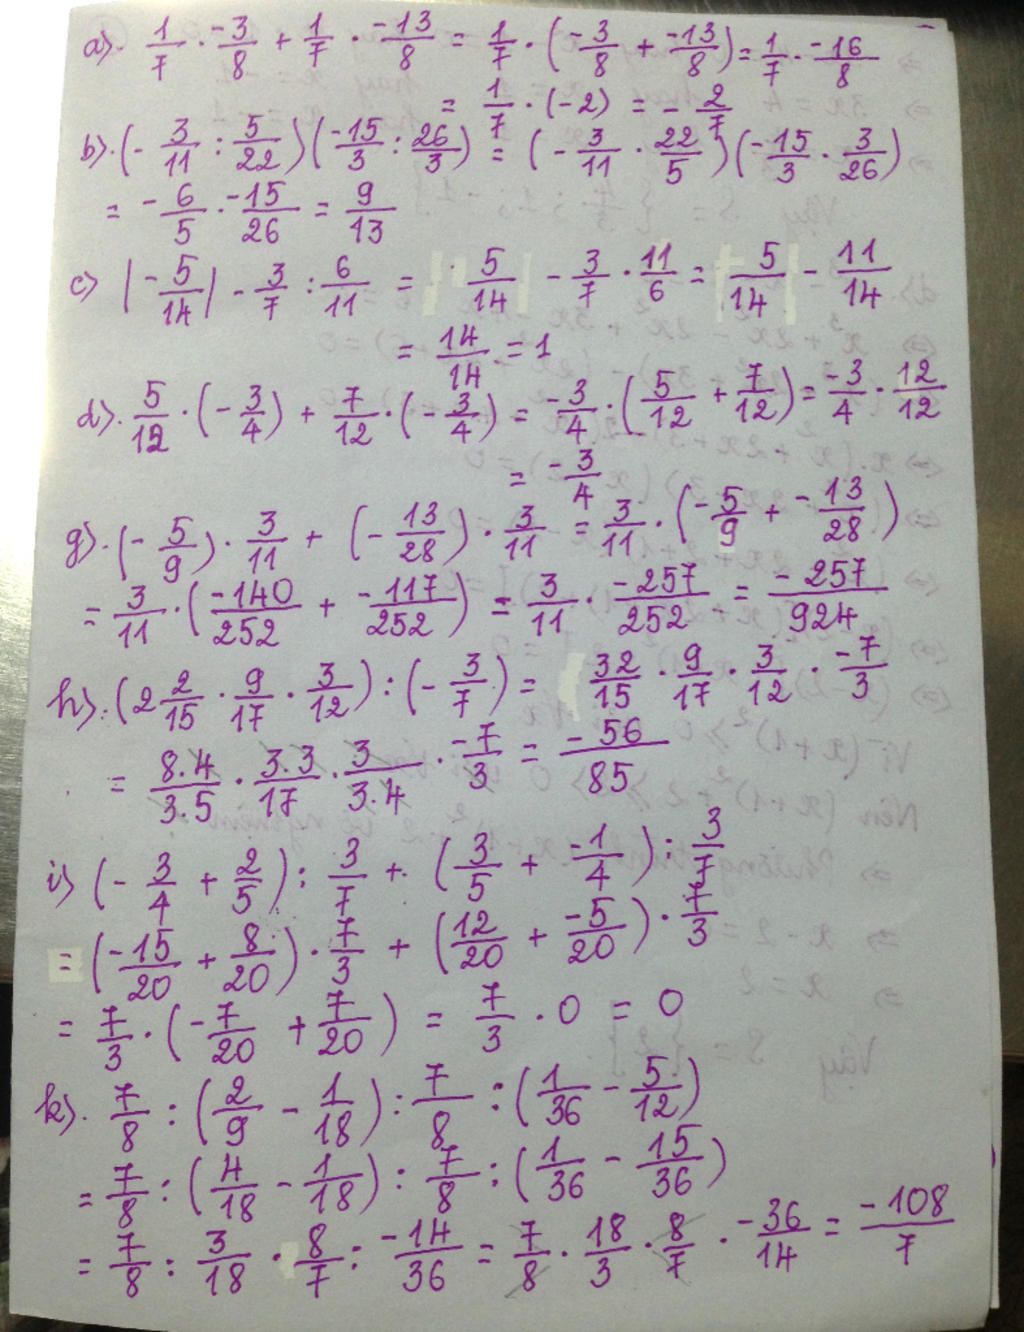 a). 1/7 . -3/8 + 1/7 . -13/8 = 1/7 . (-3/8 + -13/8) = 1/7 . -16/8
= 1/7 . (-2) = -2/7
b). (-3/11 : 5/22)(-15/3 : 26/3) = (-3/11 . 22/5)(-15/3 . 3/26)
= -6/5 . -15/26 = 9/13
c) |-5/14| - 3/7 : 6/11 = 5/14 - 3/7 . 11/6 = 5/14 - 11/14
= 14/14 = 1
d). 5/12 . (-3/4) + 7/12 . (-3/4) = -3/4 . (5/12 + 7/12) = -3/4 . 12/12
= -3/4
g). (-5/9) . 3/11 + (-13/28) . 3/11 = 3/11 . (-5/9 + -13/28)
= 3/11 . (-140/252 + -117/252) = 3/11 . -257/252 = -257/924
h). (2 2/15 . 9/17 . 3/12) : (-3/7) = 32/15 . 9/17 . 3/12 . -7/3
= 8.4/3.5 . 3.3/17 . 3/3.4 . -7/3 = -56/85
i) (-3/4 + 2/5) : 3/7 + (3/5 + -1/4) : 3/7
= (-15/20 + 8/20) . 7/3 + (12/20 + -5/20) . 7/3
= 7/3 . (-7/20 + 7/20) = 7/3 . 0 = 0
k). 7/8 : (2/9 - 1/18) : 7/8 : (1/36 - 5/12)
= 7/8 : (4/18 - 1/18) : 7/8 : (1/36 - 15/36)
= 7/8 : 3/18 . 8/7 : -14/36 = 7/8 . 18/3 . 8/7 . -36/14 = -108/7